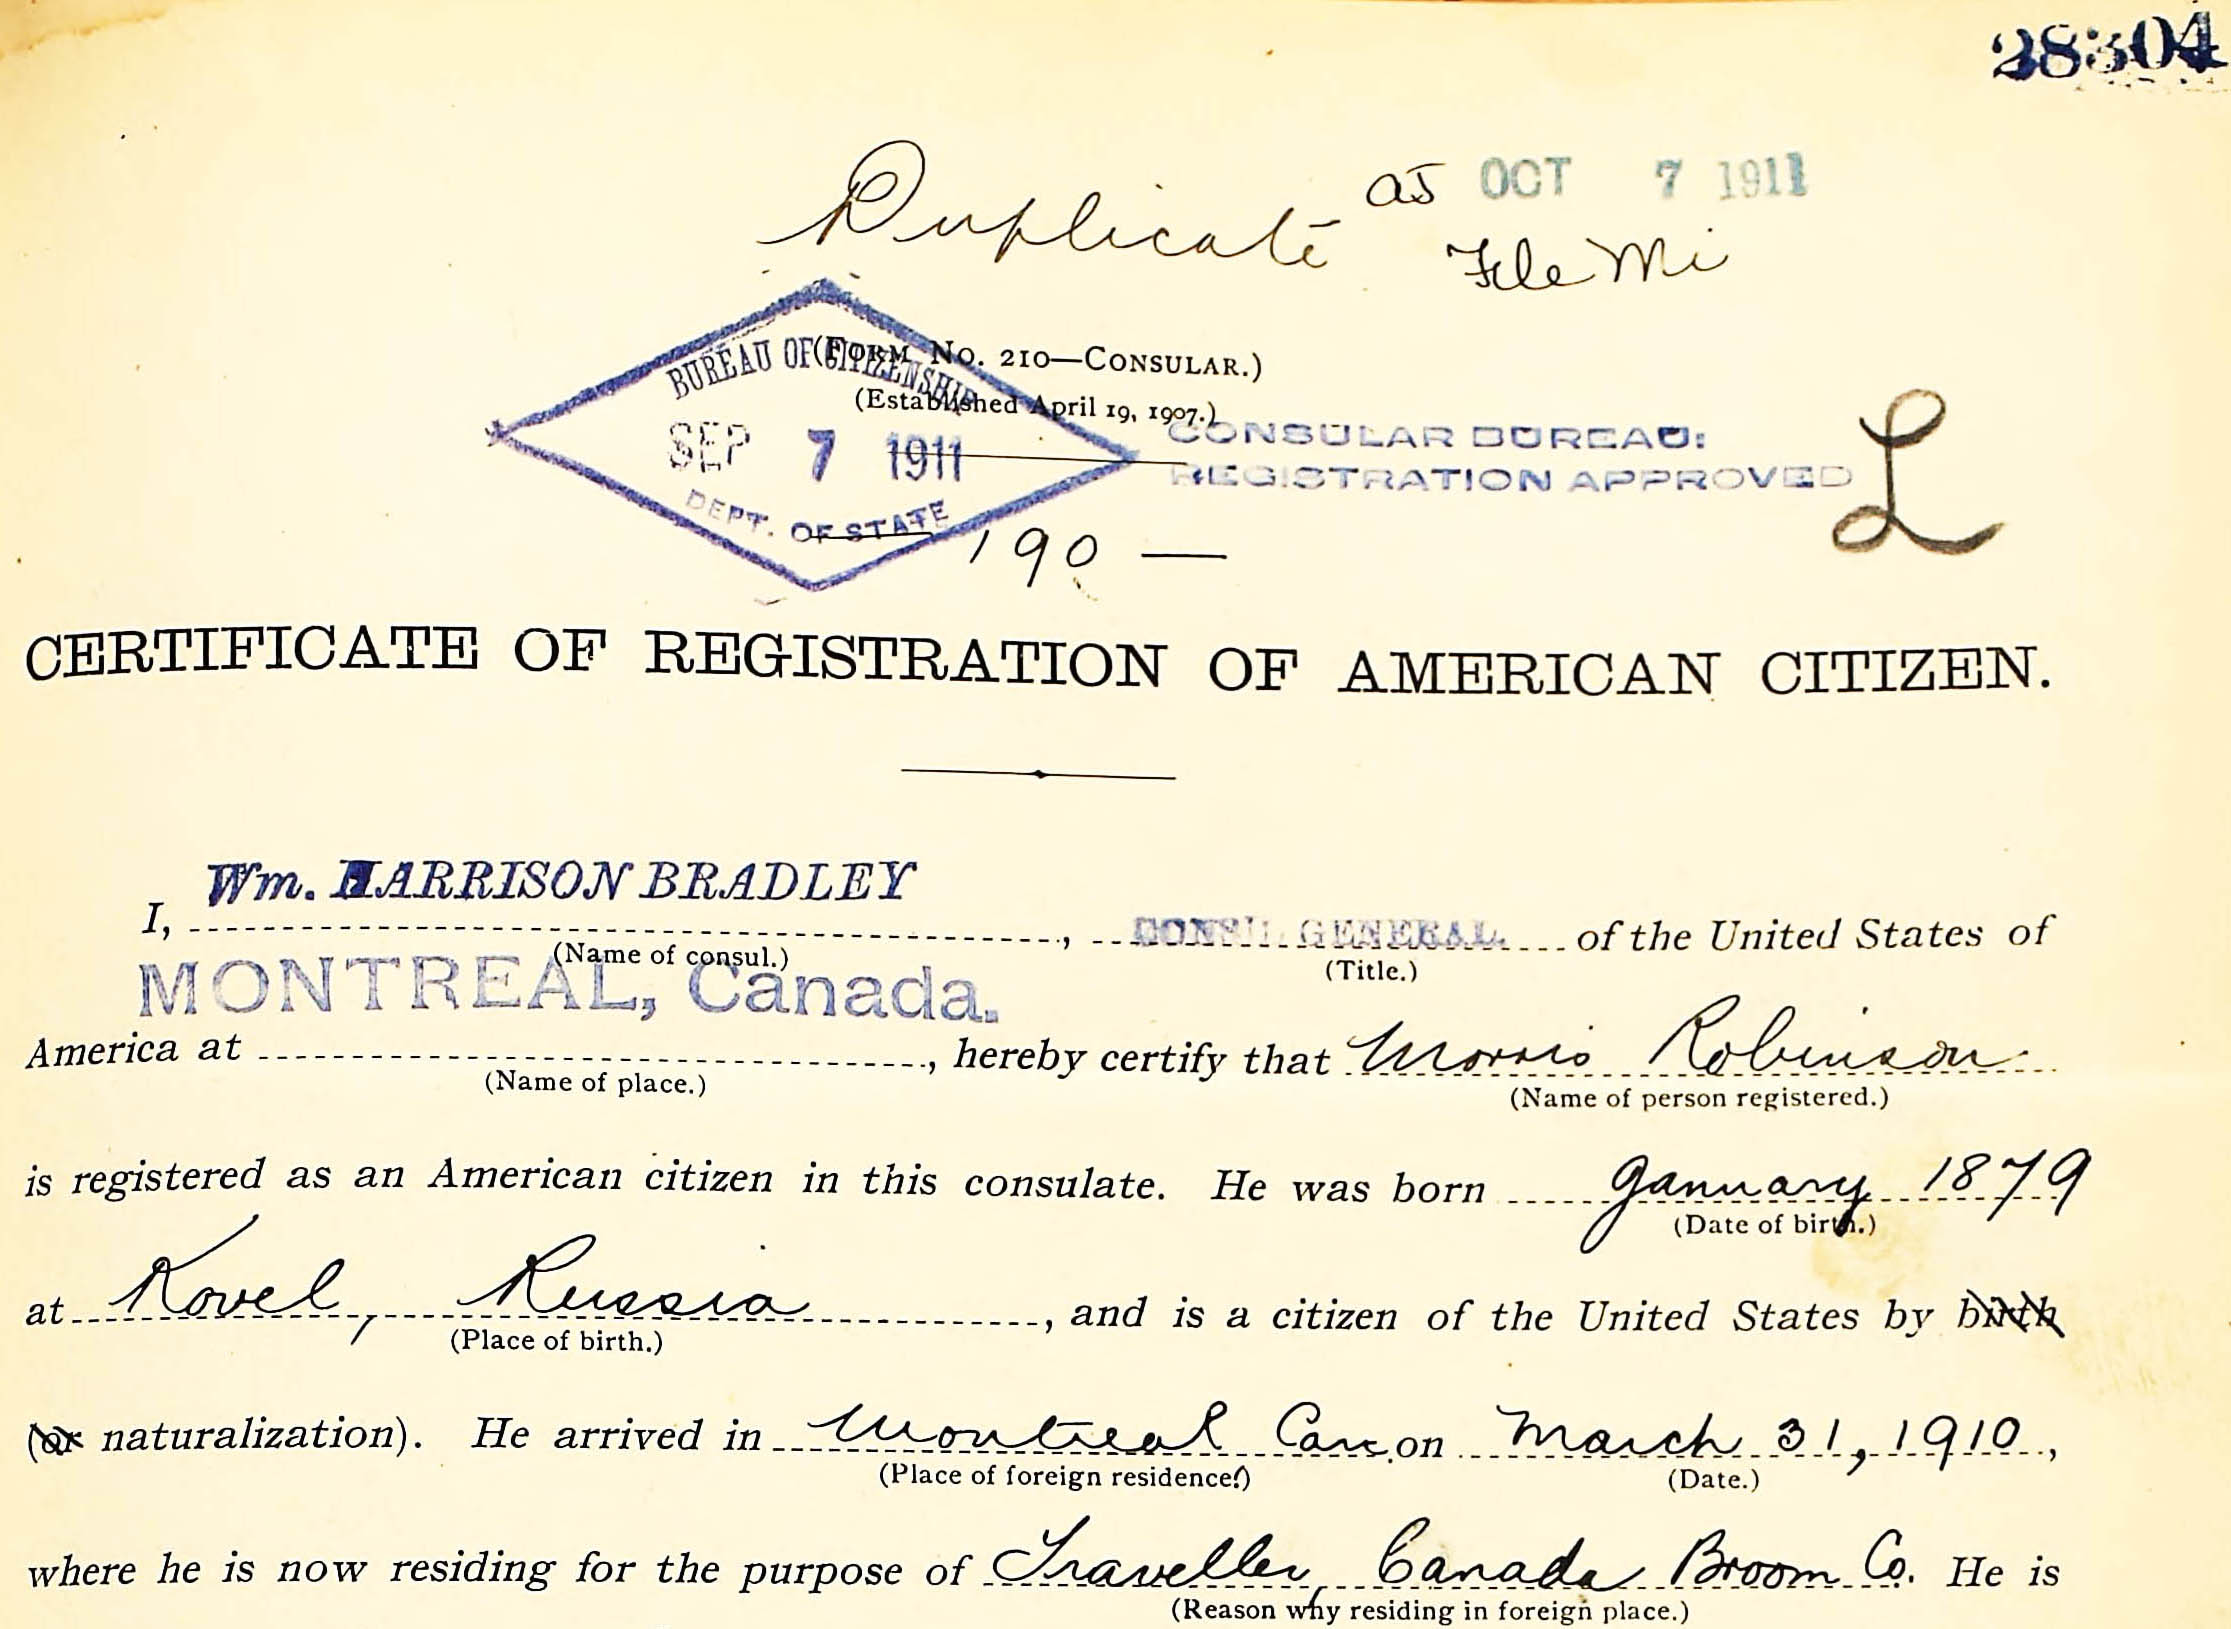 28304
Duplicate
OCT 7 1911
File
(FORM No. 210—CONSULAR.)
(Established April 19, 1907.)
BUREAU OF CITIZENSHIP
SEP 7 1911
DEPT. OF STATE
CONSULAR BUREAU:
REGISTRATION APPROVED
L
190 —
CERTIFICATE OF REGISTRATION OF AMERICAN CITIZEN.
I, Wm. HARRISON BRADLEY, CONSUL GENERAL of the United States of
(Name of consul.) (Title.)
MONTREAL, Canada.
America at , hereby certify that Morris Robinson
(Name of place.) (Name of person registered.)
is registered as an American citizen in this consulate. He was born January 1879
(Date of birth.)
at Kovel, Russia, and is a citizen of the United States by birth
(Place of birth.)
(or naturalization). He arrived in Montreal Can. on March 31, 1910,
(Place of foreign residence.) (Date.)
where he is now residing for the purpose of Traveller, Canada Broom Co. He is
(Reason why residing in foreign place.)